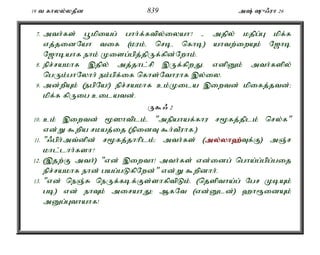 19 வ காலல்லதீன 839 அஷ் ஷுஃரா 26
7. அவர்கள் பூமியைப் பார்க்கவில்லையா? - அதில் மதிப்பு மிக்க
எத்தனையோ வகை (மரம், செடி கொடி,) யாவற்றையும் ஜோடி
ஜோடியாக நாம் முளைப்பித்திருக்கின்றோம்.
8. நிச்சயமாக இதில் அத்தாட்சி இருக்கிறது. எனினும் அவர்களில்
பெரும்பாலோர் நம்பிக்கை கொள்வோராக இல்லை.
9. அன்றியும் (நபியே!) நிச்சயமாக உம்முடைய இறைவன் மிகைத்தவன்;
மிக்க கிருபை உடையவன்.
ருகூஃ 2
10. உம் இறைவன் மூஸாவிடம், "அநியாயக்கார சமூகத்திடம் செல்க"
என்று கூறிய சமயத்தை (நினைவு கூர்வீராக.)
11. "ஃபிர்அவ்னின் சமூகத்தாரிடம்; அவர்கள் (அல்லாஹ்வுக்கு) அஞ்ச
மாட்டார்களா?
12. (இதற்கு அவர்) "என் இறைவா! அவர்கள் என்னைப் பொய்ப்பிப்பதை
நிச்சயமாக நான் பயப்படுகிறேன்" என்று கூறினார்.
13. "என் நெஞ்சு நெருக்கடிக்குள்ளாகிவிடும். (தெளிவாய்ப் பேச முடியும்
படி) என் நாவும் அசையாது; ஆகவே (என்னுடன்) ஹாரூனையும்
அனுப்புவாயாக!